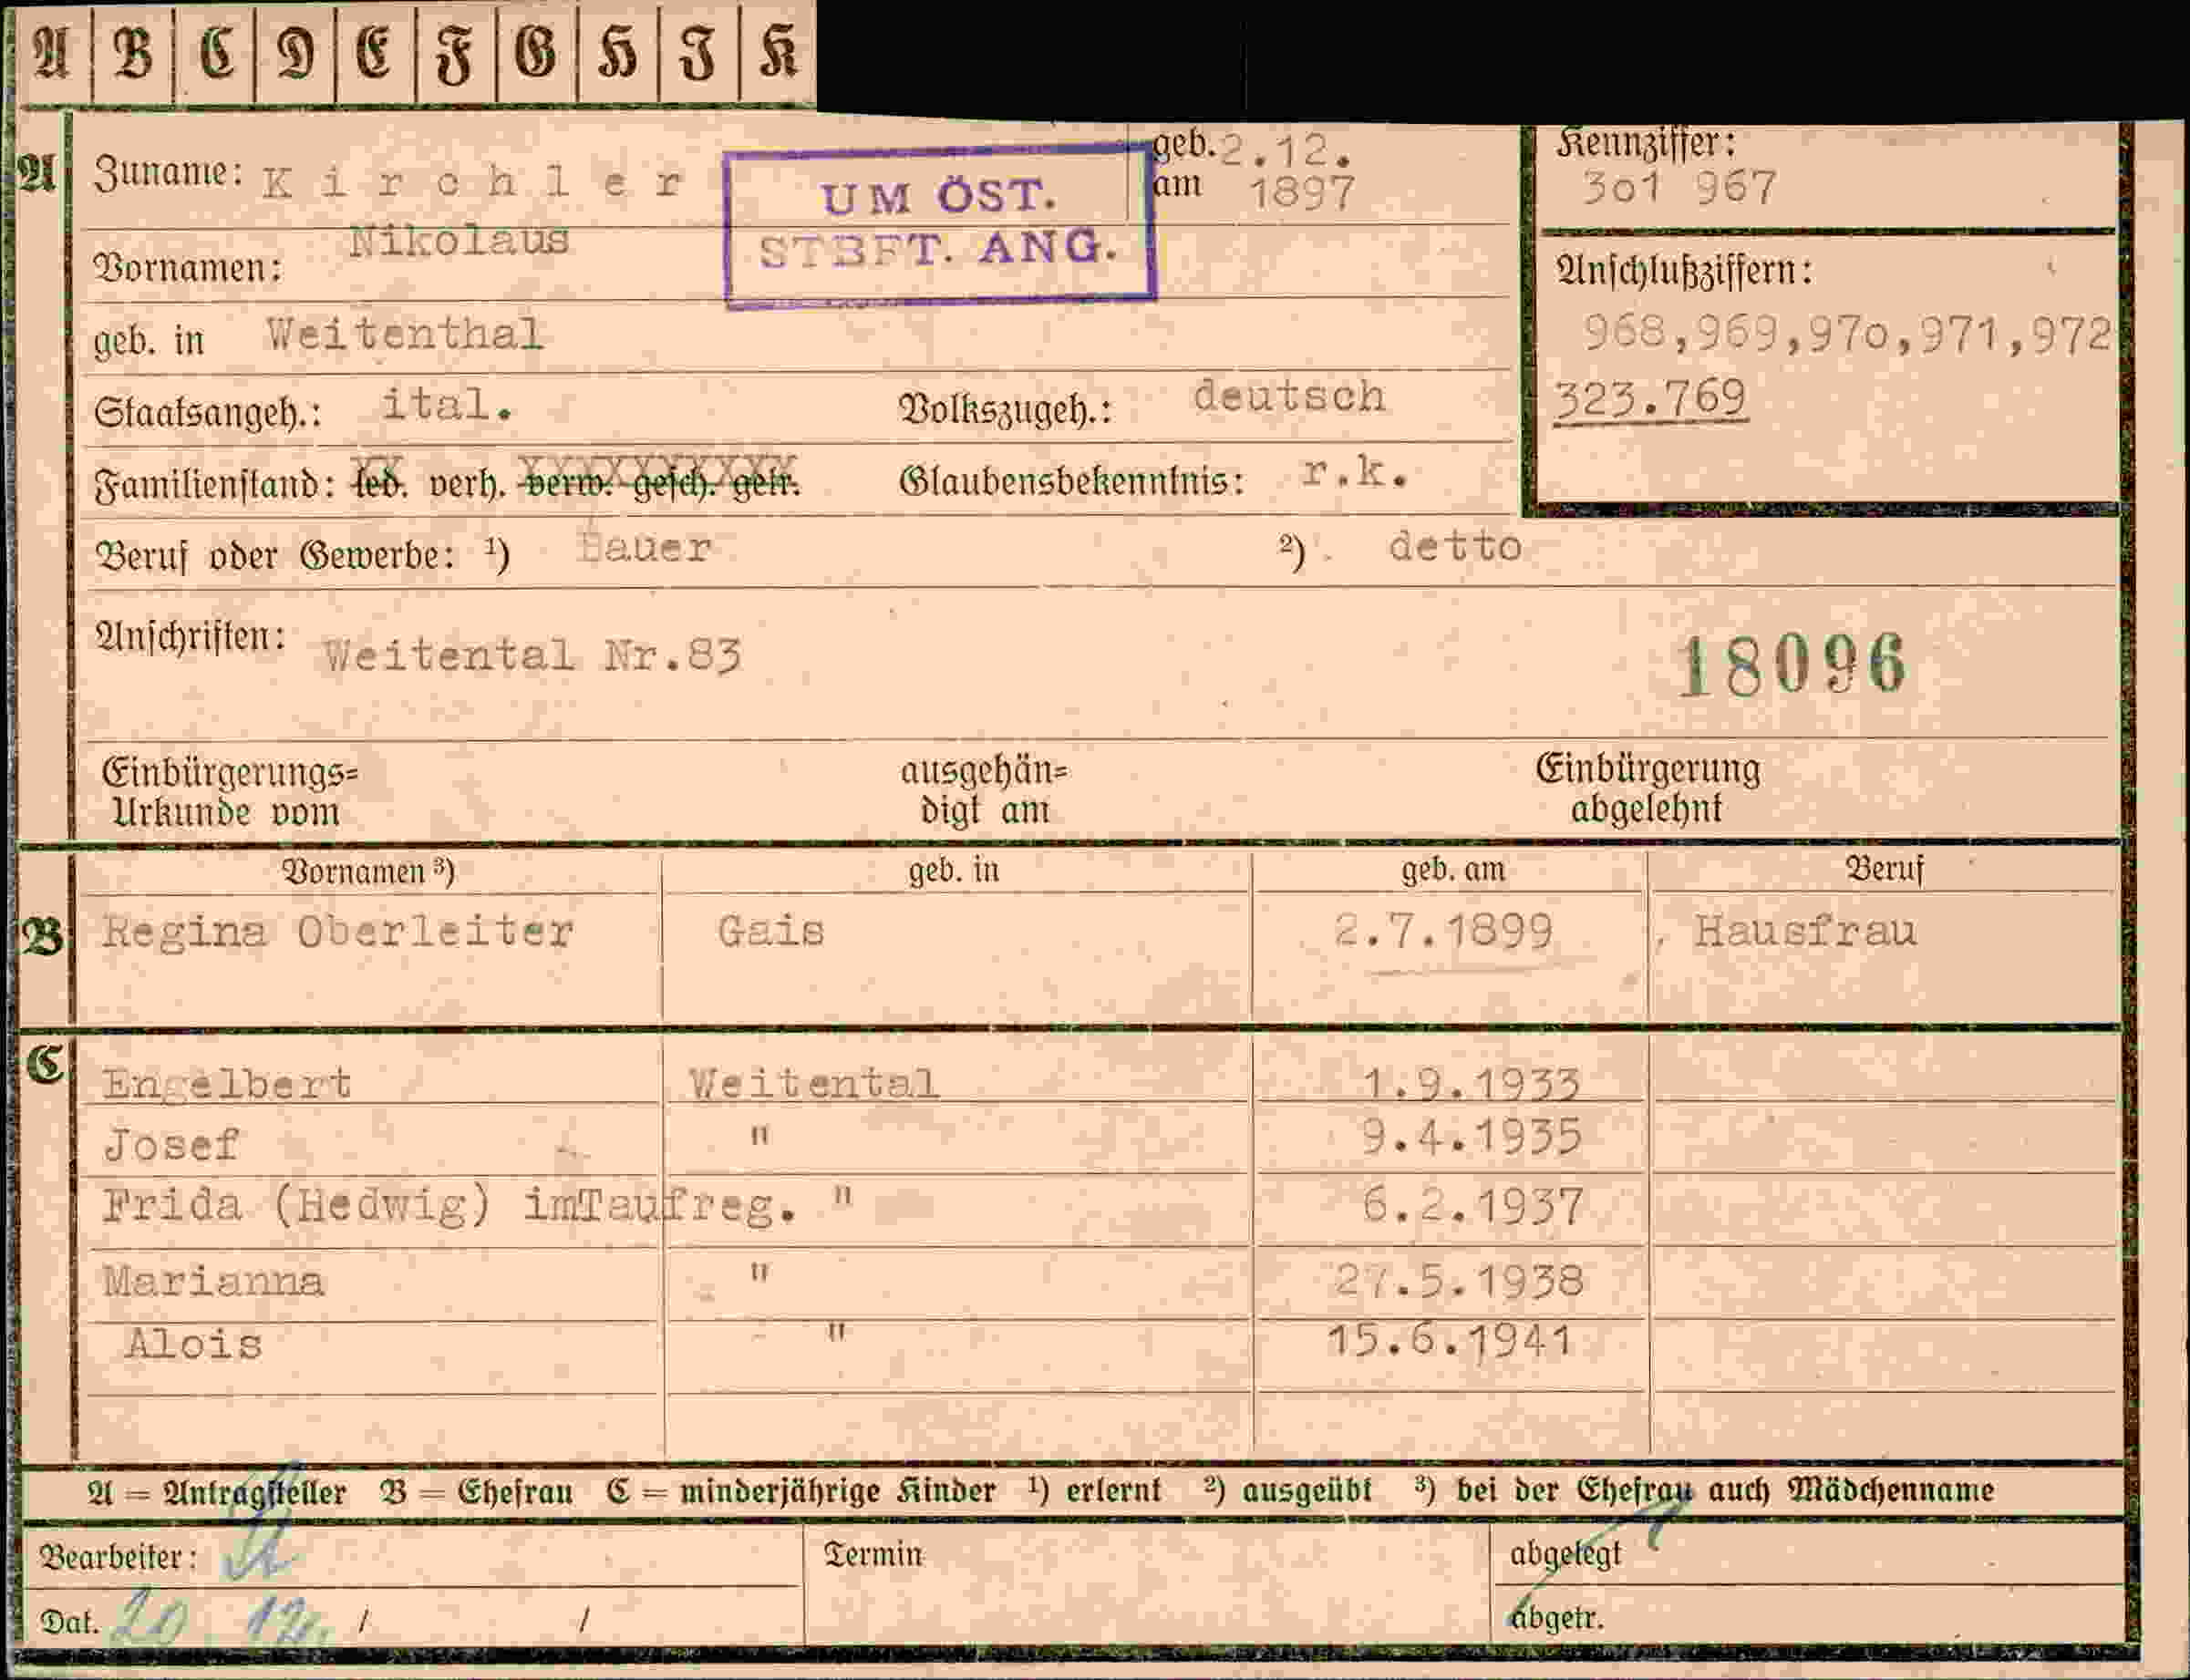 A B C D E F G H I K
A Zuname: Kirchler geb. am 2.12. 1897
Kennziffer: 3o1 967
UM ÖST. STBFT. ANG.
Vornamen: Nikolaus
Anschlußziffern:
968,969,97o,971,972
323.769
geb. in Weitenthal
Staatsangeh.: ital. Volkszugeh.: deutsch
Familienstand: led. verh. verw. gesch. getr. Glaubensbekenntnis: r.k.
Beruf oder Gewerbe: ¹) Bauer ²) detto
Anschriften: Weitental Nr.83
18096
Einbürgerungs= ausgehän= Einbürgerung
Urkunde vom digt am abgelehnt
Vornamen ³) geb. in geb. am Beruf
B Regina Oberleiter Gais 2.7.1899 Hausfrau
C Engelbert Weitental 1.9.1933
Josef " 9.4.1935
Frida (Hedwig) imTaufreg. " 6.2.1937
Marianna " 27.5.1938
Alois " 15.6.1941
A = Antragsteller B = Ehefrau C = minderjährige Kinder ¹) erlernt ²) ausgeübt ³) bei der Ehefrau auch Mädchenname
Bearbeiter: Termin abgelegt
Dat. 20 12. / / abgetr.